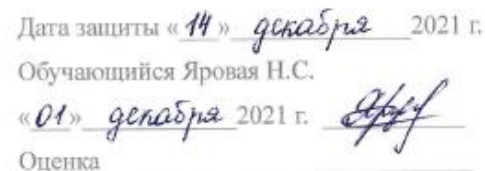 Дата защиты «14» декабря 2021 г.
Обучающийся Яровая Н.С.
«01» декабря 2021 г.
Оценка